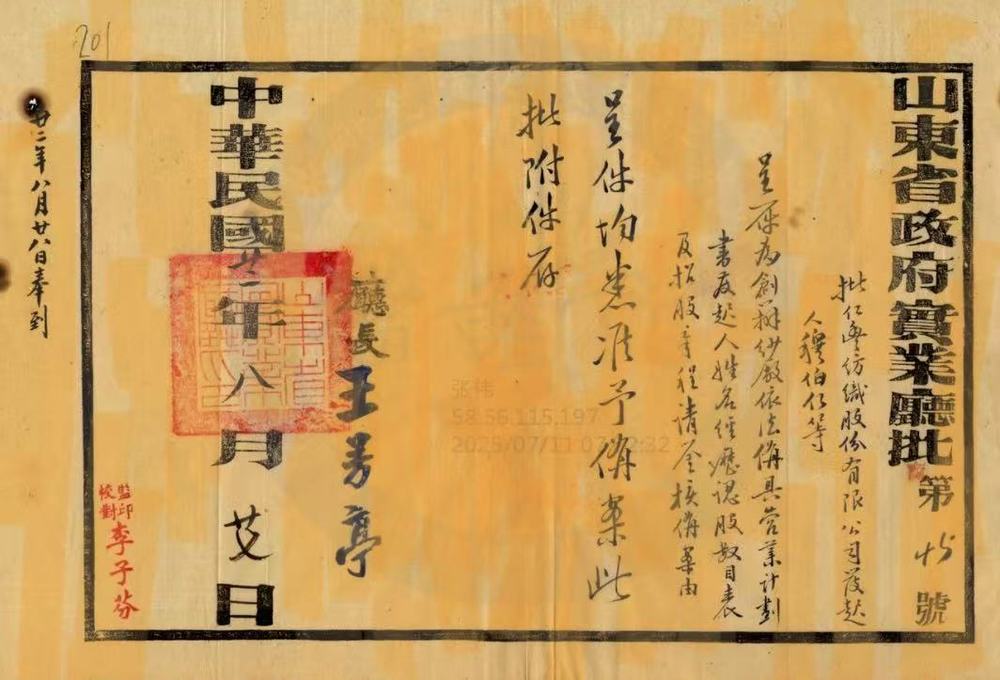 山東省政府實業廳批 第 號
批仁豐紡織股份有限公司發起
人穆伯仁等
呈一件為創辦紗廠依法備具營業計劃
書發起人姓名經歷認股數目表
及招股章程請鑒核備案由
呈件均悉准予備案此
批附件存
廳長王芳亭
中華民國廿二年八月 日
監印
校對
李子芬
廿二年八月廿八日奉到
201
张伟
58.56.115.197
2025/07/11